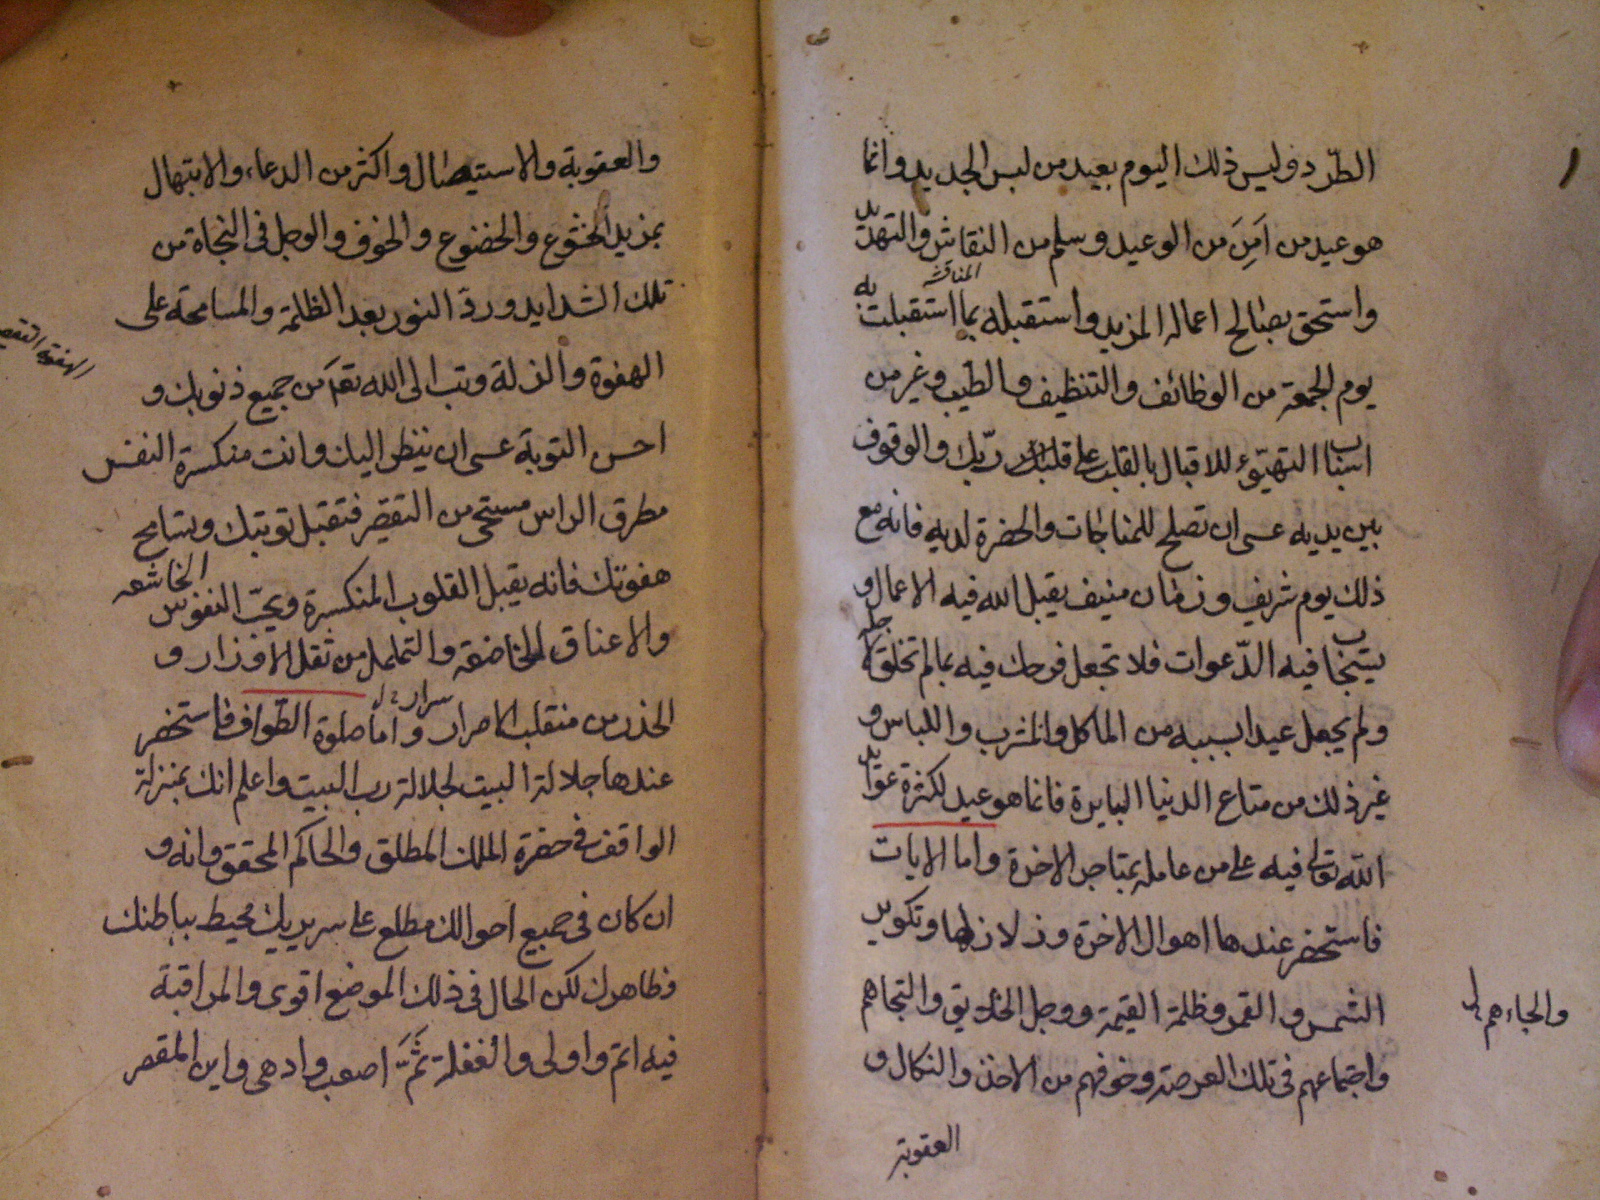 الطّرد وليس ذلك اليوم بعيد من لبس الجديد وانما
هو عيد من اَمِنَ من الوعيد وسلم من النقاش والتهديد
المناقشه
واستحق بصالح اعماله المزيد واستقبله بما استقبلت به
يوم الجمعة من الوظائف والتنظيف والطيب وغير من
اسباب التهيّؤ للاقبال بالقلب على ربّك والوقوف
بين يديه عسى ان تصلح للمناجات والحضرة لديه فانه مع
ذلك يوم شريف وزمان منيف يقبل الله فيه الاعمال و
يستجاب فيه الدّعوات فلا تجعل فرحك فيه بما لم تخلق لاجله
ولم يجعل عيدا بسببه من الماكل والمشرب واللباس و
غير ذلك من متاع الدنيا البايرة فانما هو عيد لكثرة عوايد
الله تعالى فيه على من عامله بمتاجر الاخرة واما الايات
فاستحضر عندها اهوال الاخرة وزلازلها وتكوير
الشمس والقمر وظلمة القيمة ووجل الخلايق والتجاهم
والجاءهم
واجتماعهم فى تلك العرصة وخوفهم من الاخذ والنكال و
العقوبة
والعقوبة والاستيصال واكثر من الدعاء والابتهال
بمزيد الخشوع والخضوع والخوف والوجل فى النجاة من
تلك الشدايد وردّ النور بعد الظلمة والمسامحة على
الهفوة والزلة وتب الى الله تعالى من جميع ذنوبك و
احسن التوبة عسى ان ينظر اليك وانت منكسرة النفس
مطرق الراس مستحى من التقصير فتقبل توبتك ويسامح
هفوتك فانه يقبل القلوب المنكسرة ويحبّ النفوس الخاشعه
والاعناق الخاضعة والتململ من ثقل الاوزار و
الحذر من منقلب الاصرار واما صلوة الطّواف فاستحضر
عندها جلالة البيت لجلالة رب البيت واعلم انك بمنزلة
الواقف فى حضرة الملك المطلق والحاكم المحقق وانه و
ان كان فى جميع احوالك مطلع على سريرتك محيط بباطنك
وظاهرك لكن الحال فى ذلك الموضع اقوى والمراقبة
فيه اتم واولى والغفلة ثَمَّ اصعب وادهى واين المقصر